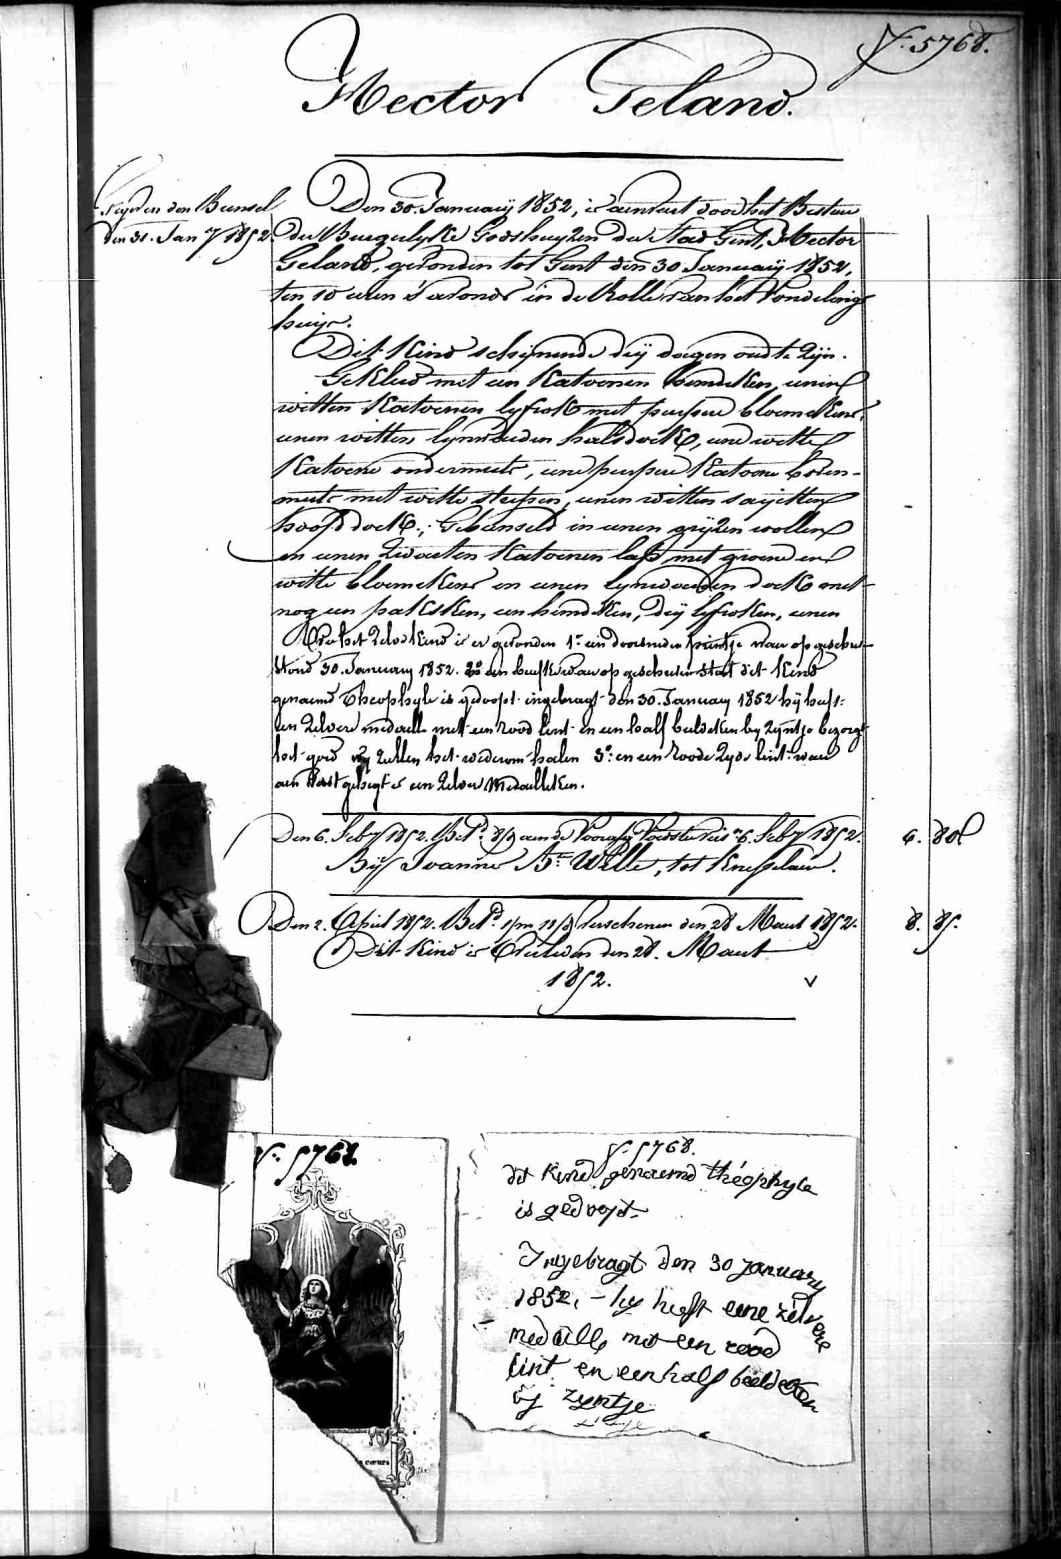 N.° 5768.
Hector Geland.
den Bussel
den 31. Jan.y 1852.
Den 30. January 1852, is aenveert door het Bestuer
der Burgerlyke Godshuyzen der Stad Gent, Hector
Geland, gevonden tot Gent den 30 January 1852,
ten 10 uren 's avonds in de Rolle van het Vondeling
huys.
Dit Kind schynende dry dagen oud te zyn.
Gekleed met een Katoenen hemdeken, eenen
witten Katoenen lyfrok met purpere bloemekens,
eenen witten lynwaeden halsdoek, eene witte
Katoene ondermuts, eene purpere Katoene boven-
muts met witte streepen, eenen witten sayetten
hoofddoek; Gebunseld in eenen gryzen wollen
en eenen zwarten Katoenen lap met groene en
witte bloemekens en eenen lynwaeden doek met
nog een pakesken, een hemdeken, dry lyfroken, eenen
Op het zelve Kind is er gevonden 1.° een doorsneden printje waer op geschre-
Stond 30. January 1852. 2° een briefke waer op geschreven staet dit Kind
genaemd Theophyle is gedoopt ingebragt den 30. January 1852 hy heeft
een zilvere medaell met een rood lint en een half beeldeken by zyntje bezorgt
het goed wy zullen het wederom haelen 3.° en een roode zyde lint waer
aen vast gehegt is een zilver Medailleken.
Den 6. Feb.y 1852. Bet.d aen de Voedster 6. Feb.y 1852.
6. 80
By Joanne B.te Wille, tot Knesselaere.
Den 2. April 1852. Bet.d verschenen den 28 Maert 1852.
8. 85.
Dit Kind is Overleden den 28. Maert
1852.
N.° 5768.
cœurs
N.° 5768.
dit Kind genaemd théophyle
is gedoopt
Ingebragt den 30 january
1852, – hy heeft eene zilvere
medaille met een rood
lint en een half beeldeken
by zyntje